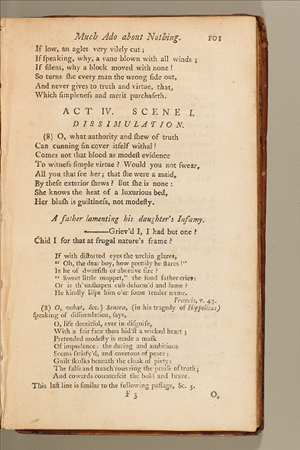 Much Ado about Nothing. 101
If low, an aglet very vilely cut;
If speaking, why, a vane blown with all winds;
If silent, why a block moved with none!
So turns she every man the wrong side out,
And never gives to truth and virtue, that,
Which simpleness and merit purchaseth.
ACT IV. SCENE I.
DISSIMULATION.
(8) O, what authority and shew of truth
Can cunning sin cover itself withal!
Comes not that blood as modest evidence
To witness simple virtue? Would you not swear,
All you that see her; that she were a maid,
By these exterior shews? But she is none:
She knows the heat of a luxurious bed,
Her blush is guiltiness, not modesty.
A father lamenting his daughter's Infamy.
——Griev'd I, I had but one?
Chid I for that at frugal nature's frame?
If with distorted eyes the urchin glares,
" Oh, the dear boy, how prettily he stares!"
Is he of dwarfish or abortive size?
" Sweet little moppet," the fond father cries:
Or is th' unshapen cub deform'd and lame?
He kindly lisps him o'er some tender name.
Francis, v. 43.
(8) O, what, &c.) Seneca, (in his tragedy of Hippolitus)
speaking of dissimulation, says,
O, life deceitful, ever in disguise,
With a fair face thou hid'st a wicked heart;
Pretended modesty is made a mask
Of impudence: the daring and ambitious
Seems satisfy'd, and covetous of peace:
Guilt skulks beneath the cloak of piety:
The false and treach'rous ring the praise of truth;
And cowards counterfeit the bold and brave.
This last line is similar to the following passage, Sc. 5.
F 3 O,